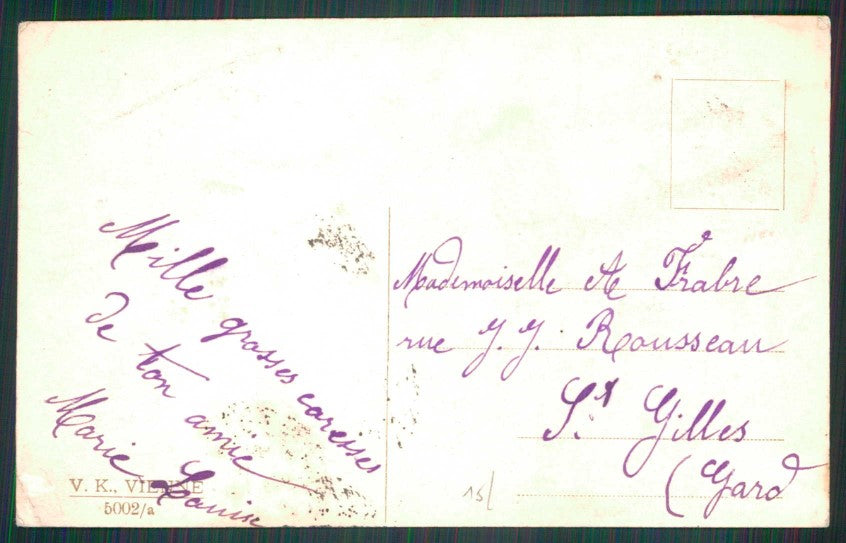 Mille grosses caresses
de ton amie
Marie Louise
Mademoiselle A Frabre
rue J. J. Rousseau
St Gilles
(Gard
V. K., VIENNE
5002/a
15/